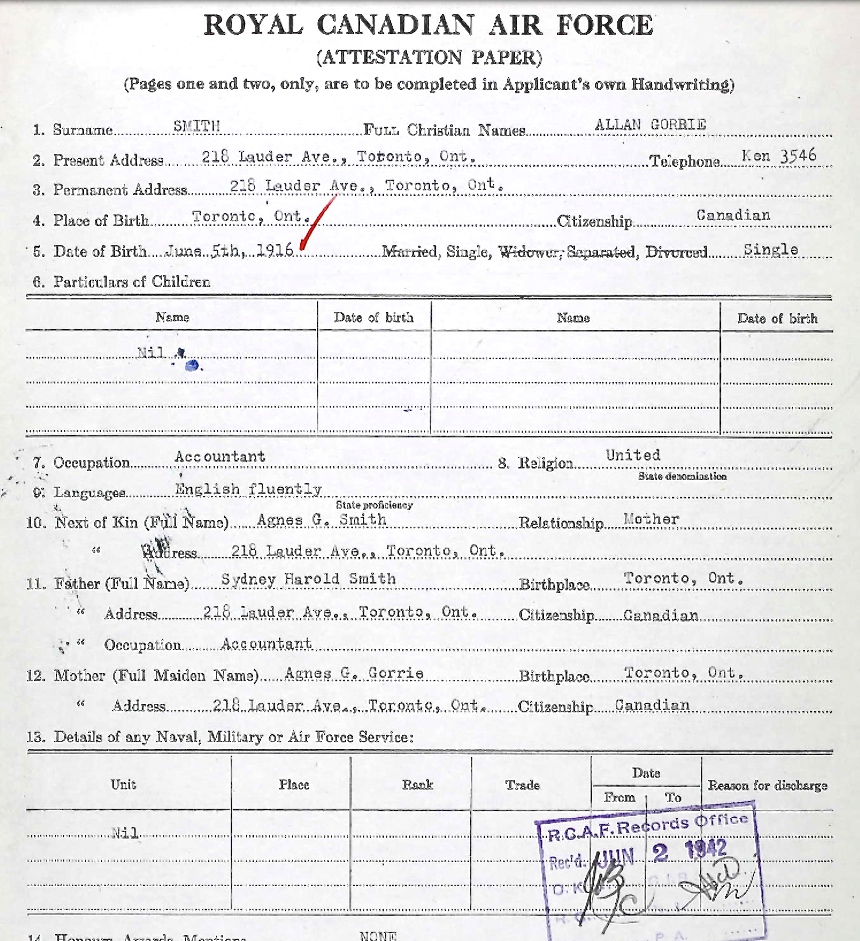 ROYAL CANADIAN AIR FORCE
(ATTESTATION PAPER)
(Pages one and two, only, are to be completed in Applicant's own Handwriting)
1. Surname SMITH FULL Christian Names ALLAN GORRIE
2. Present Address 218 Lauder Ave., Toronto, Ont. Telephone Ken 3546
3. Permanent Address 218 Lauder Ave., Toronto, Ont.
4. Place of Birth Toronto, Ont. Citizenship Canadian
5. Date of Birth June 5th, 1916 Married, Single, Widower, Separated, Divorced Single
6. Particulars of Children
Name Date of birth Name Date of birth
Nil
7. Occupation Accountant 8. Religion United
State denomination
9. Languages English fluently
State proficiency
10. Next of Kin (Full Name) Agnes G. Smith Relationship Mother
" Address 218 Lauder Ave., Toronto, Ont.
11. Father (Full Name) Sydney Harold Smith Birthplace Toronto, Ont.
" Address 218 Lauder Ave., Toronto, Ont. Citizenship Canadian
" Occupation Accountant
12. Mother (Full Maiden Name) Agnes G. Gorrie Birthplace Toronto, Ont.
" Address 218 Lauder Ave., Toronto, Ont. Citizenship Canadian
13. Details of any Naval, Military or Air Force Service:
Unit Place Rank Trade Date Reason for discharge
From To
Nil
R.C.A.F. Records Office
Rec'd. JUN 2 1942
O.K.
P.A.
14. Honours, Awards, Mentions NONE